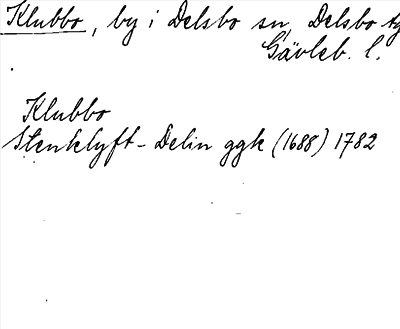 Klubbo, by i Delsbo sn, Delsbo
Gävleb. l.
Klubbo
Stenklyft - Delin ggk (1688) 1782